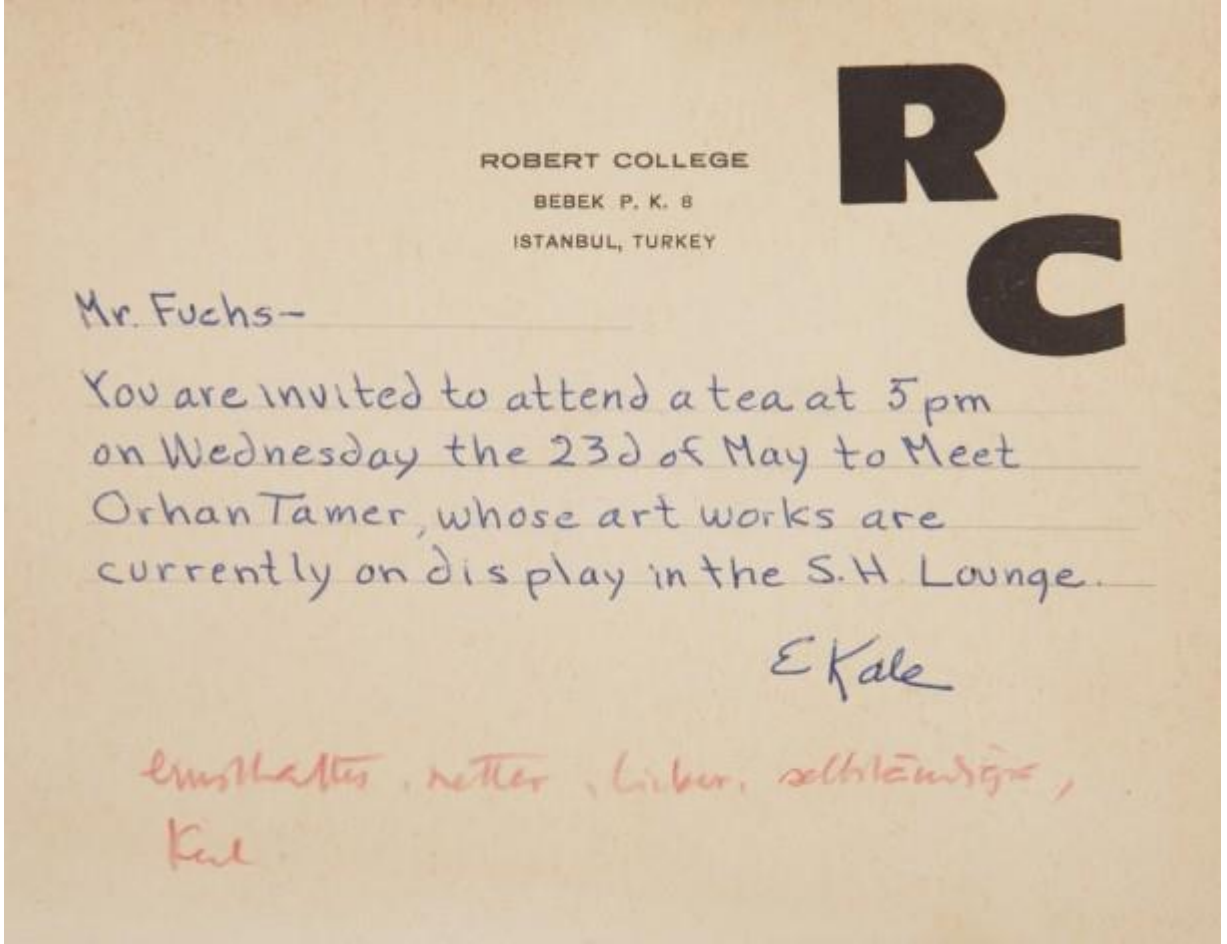 R
C
ROBERT COLLEGE
BEBEK P. K. 8
ISTANBUL, TURKEY
Mr. Fuchs-
You are invited to attend a tea at 5 pm
on Wednesday the 23d of May to Meet
Orhan Tamer, whose art works are
currently on display in the S.H. Lounge.
E Kale
ernsthafter, netter, lieber, selbständiger,
Kerl